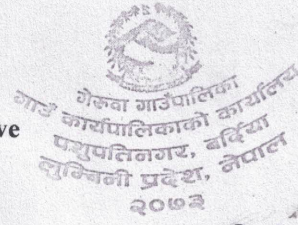 गेरुवा गाउँपालिका
गाउँ कार्यपालिकाको कार्यालय
ve
पशुपतिनगर, बर्दिया
लुम्बिनी प्रदेश, नेपाल
२०७३